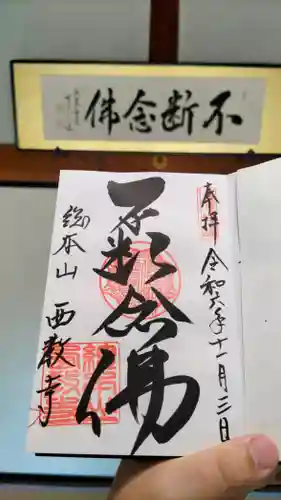 不断念佛
奉拝
令和六年十一月三日
不断念佛
総本山 西教寺